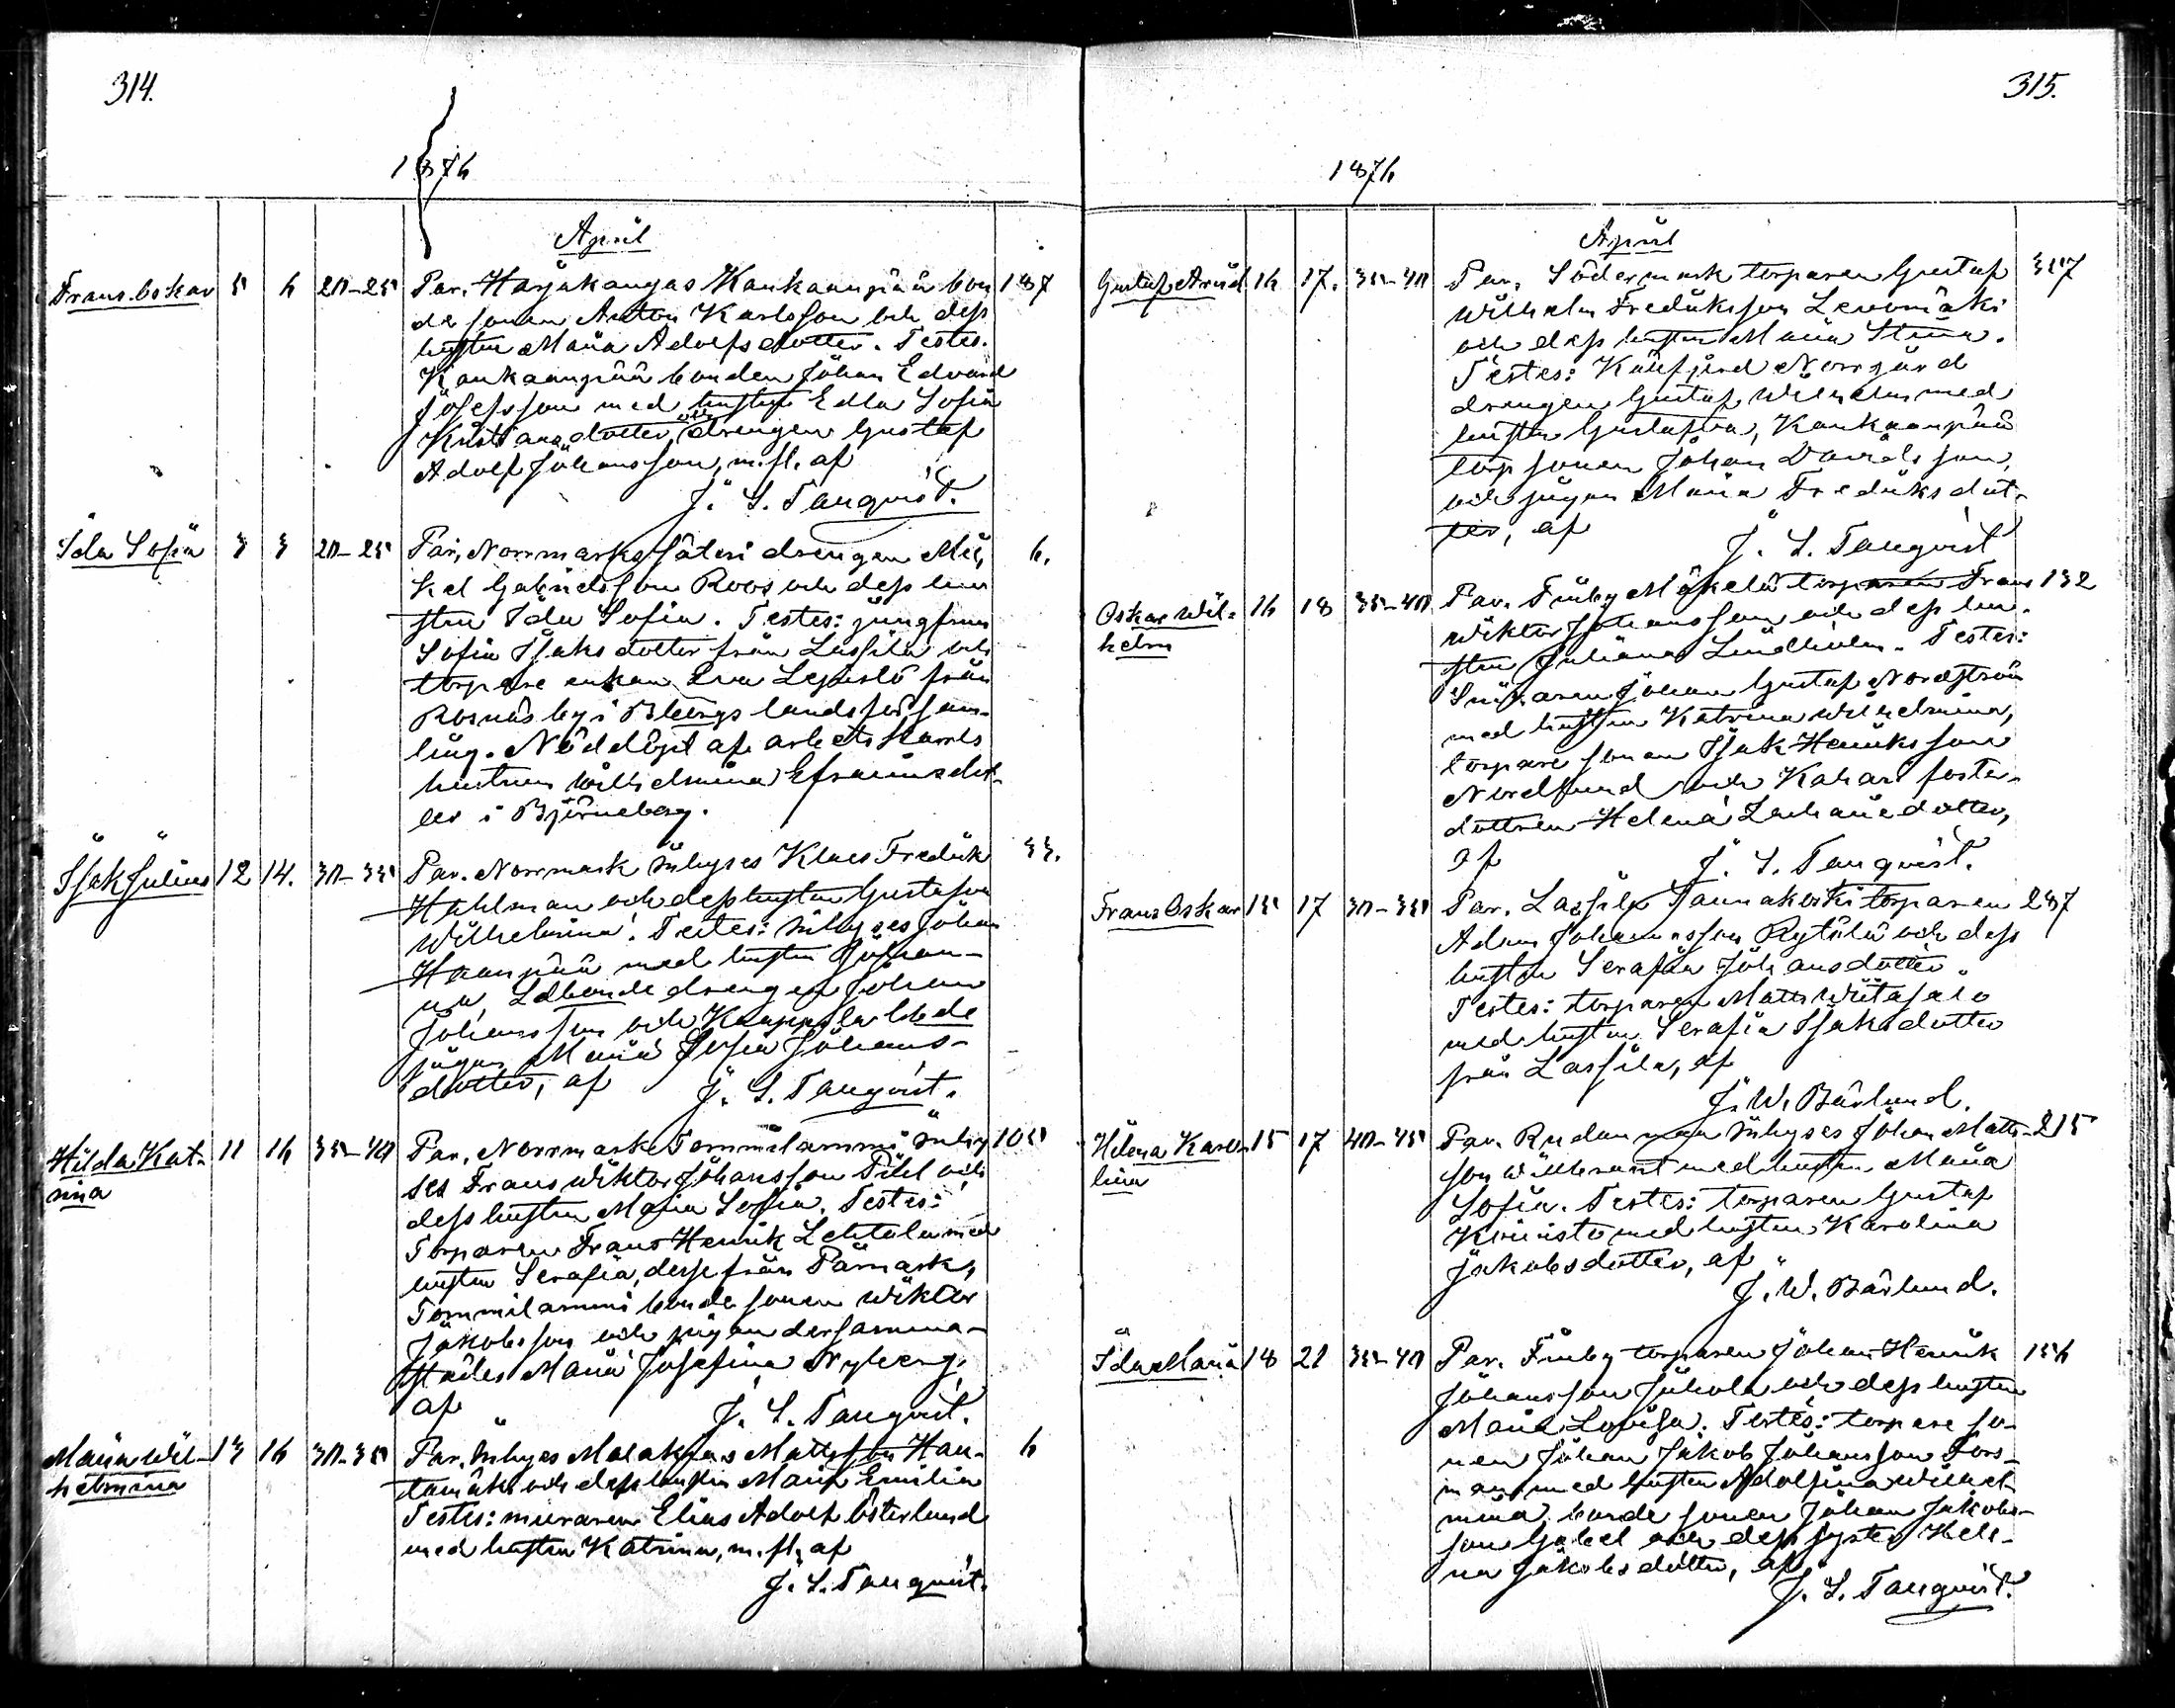 314.
1876
April
Frans Oskar 5 6 20-25 Par. Harjakangas Kankaanpää bon 187
de sonen Anton Karlsson och dess
hustru Maria Adolfsdotter. Testes.
Kankaanpää bonden Johan Edvard
Josefsson med hustru Edla Sofia
Kristiansdotter, drengen Gustaf
Adolf Johansson, m.fl. af
J. S. Tanqvist.
Ida Sofia 3 3 20-25 Par. Norrmarks säteri drengen Mi- 6.
kel Gabrielsson Roos och dess hu
stru Ida Sofia. Testes: jungfrun
Sofia Isaksdotter från Lassila och
torpare enkan Eva Lepistö från
Rosnäs by i B:borgs landsförsam-
ling. Nöddöpt af arbetskarls
hustrun Wilhelmina Efraimsdot-
ter i Björneborg.
Isak Julius 12 14. 30-35 Par. Norrmark inhyses Klaes Fredrik 33.
Hahlman och dess hustru Gustafva
Wilhelmina. Testes: inhyses Johan
Haanpää med hustru Johan-
na, bonde drengen Johan
Johansson och Kauppila bonde
pigan Maria Sofia Johans-
dotter, af J. S. Tanqvist.
Hilda Kat- 11 16 35-40 Par. Norrmark Tommilammi inhy 105
rina
ses Frans Wiktor Johansson Pihl och
dess hustru Maria Sofia. Testes:
Torparen Frans Henrik Lehtala med
hustru Serafia, desse från Påmark,
Tommilammi bonde sonen Wiktor
Jakobsson och pigan dersamma-
städes Maria Josefina Nyberg,
af J. S. Tanqvist.
Maria Wil- 13 16 30-35 Par. Inhyses Malakias Mattsson Hau- 6
helmina
tamäki och dess hustru Maria Emilia
Testes: muraren Elias Adolf Österlund
med hustru Katrina, m.fl. af
J. S. Tanqvist.
315.
1876
April
Gustaf Arvid 16 17. 35-40 Par. Södermark torparen Gustaf 327
Wilhelm Fredriksson Levomäki
och dess hustru Maria Stina.
Testes: Norrgård
drengen Gustaf Wilhelm med
hustru Gustafva, Kankaanpää
torp sonen Johan Davidsson,
och pigan Maria Fredriksdot-
ter, af
J. S. Tanqvist
Oskar Wil- 16 18 35-40 Par. Finby Mäkelä torparen Frans 132
helm
Wiktor Johansson och dess hu-
stru Juliana Lindholm. Testes:
Snickaren Johan Gustaf Nordström
med hustru Katrina Wilhelmina,
torpare sonen Isak Henriksson
Nordlund och Kahari foster-
dottren Helena Zachariedotter,
af J. S. Tanqvist.
Frans Oskar 15 17 30-35 Par. Lassila torparen 287
Adam Johansson Rytsilä och dess
hustru Serafia Johansdotter.
Testes: torparen Matts Wiitasalo
med hustru Serafia Isaksdotter
från Lassila, af
J. W. Bärlund.
Helena Karo- 15 17 40-45 Par. Rudanmaa inhyses Johan Matts- 215
lina
son med hustru Maria
Sofia. Testes: torparen Gustaf
Koivisto med hustru Karolina
Jakobsdotter, af
J. W. Bärlund.
Ida Maria 18 21 35-40 Par. Finby torparen Johan Henrik 156
Johansson Juhola och dess hustru
Maria Lovisa. Testes: torpare so-
nen Johan Jakob Johansson Fors-
man med hustru Adolfina Wilhel-
mina, bonde sonen Johan Jakobs-
son Gabel och dess syster Hele-
na Jakobsdotter, af
J. S. Tanqvist.